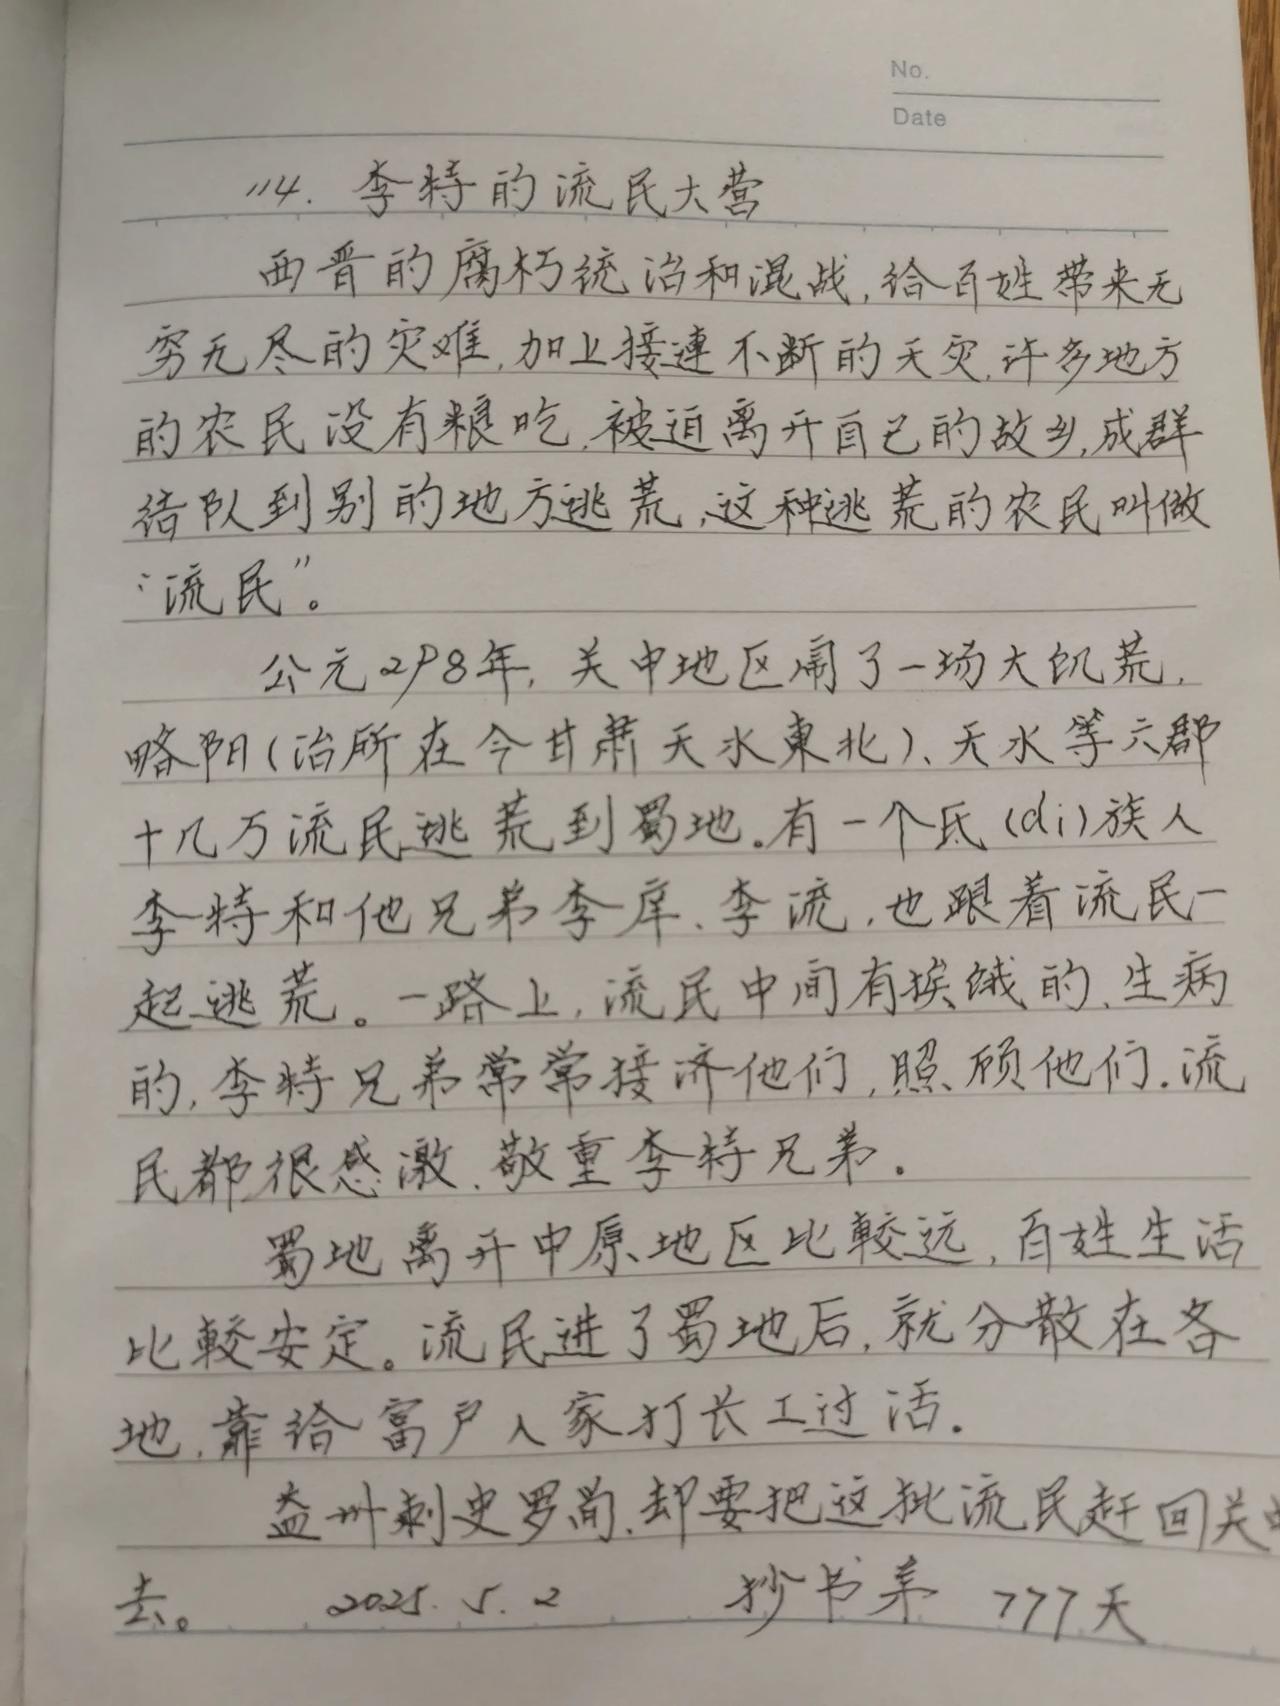 No.
Date
114. 李特的流民大营
西晋的腐朽统治和混战,给百姓带来无
穷无尽的灾难,加上接連不断的天灾,许多地方
的农民没有粮吃,被迫离开自己的故乡,成群
结队到别的地方逃荒,这种逃荒的农民叫做
“流民”。
公元298年,关中地区闹了一场大饥荒,
略阳(治所在今甘肃天水東北)、天水等六郡
十几万流民逃荒到蜀地。有一个氐(di)族人
李特和他兄弟李庠、李流,也跟着流民一
起逃荒。一路上,流民中间有挨饿的、生病
的,李特兄弟常常接济他们,照顾他们.流
民都很感激、敬重李特兄弟。
蜀地离开中原地区比較远,百姓生活
比較安定。流民进了蜀地后,就分散在各
地,靠给富户人家打长工过活.
益州刺史罗尚,却要把这批流民赶回关中
去。 2025.5.2 抄书第 777天